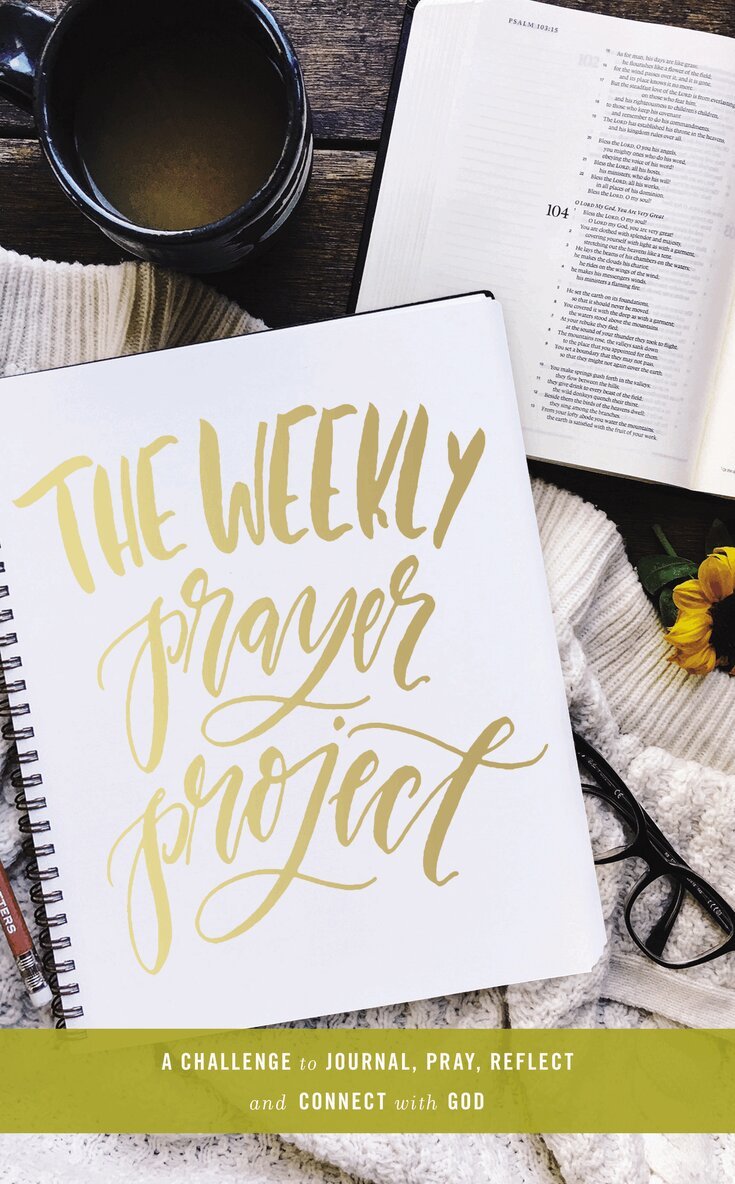 THE WEEKLY
prayer
project
PSALM 103:15
15 As for man, his days are like grass;
he flourishes like a flower of the field;
16 for the wind passes over it, and it is gone,
and its place knows it no more.
17 But the steadfast love of the LORD is from everlasting
on those who fear him,
and his righteousness to children's children,
18 to those who keep his covenant
and remember to do his commandments.
19 The LORD has established his throne in the heavens,
and his kingdom rules over all.
20 Bless the LORD, O you his angels,
you mighty ones who do his word,
obeying the voice of his word!
21 Bless the LORD, all his hosts,
his ministers, who do his will!
22 Bless the LORD, all his works,
in all places of his dominion.
Bless the LORD, O my soul!
O LORD My God, You Are Very Great
104 Bless the LORD, O my soul!
O LORD my God, you are very great!
You are clothed with splendor and majesty,
2 covering yourself with light as with a garment,
stretching out the heavens like a tent.
3 He lays the beams of his chambers on the waters;
he makes the clouds his chariot;
he rides on the wings of the wind;
4 he makes his messengers winds,
his ministers a flaming fire.
5 He set the earth on its foundations,
so that it should never be moved.
6 You covered it with the deep as with a garment;
the waters stood above the mountains.
7 At your rebuke they fled;
at the sound of your thunder they took to flight.
8 The mountains rose, the valleys sank down
to the place that you appointed for them.
9 You set a boundary that they may not pass,
so that they might not again cover the earth.
10 You make springs gush forth in the valleys;
they flow between the hills;
11 they give drink to every beast of the field;
the wild donkeys quench their thirst.
12 Beside them the birds of the heavens dwell;
they sing among the branches.
13 From your lofty abode you water the mountains;
the earth is satisfied with the fruit of your work.
A CHALLENGE to JOURNAL, PRAY, REFLECT
and CONNECT with GOD